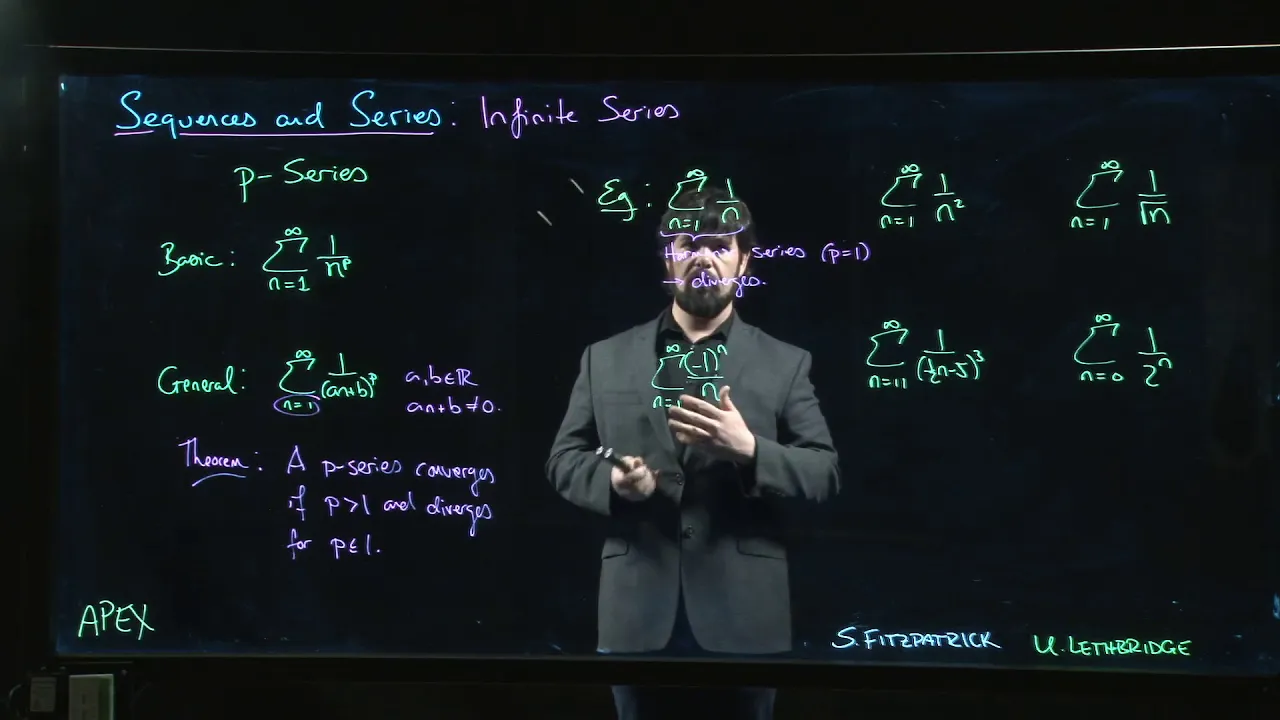 Sequences and Series: Infinite Series
p-Series
Basic: ∞∑n=1 1/n^p
General: ∞∑n=1 1/(an+b)^p a,b∈ℝ
an+b≠0.
Theorem: A p-series converges
if p>1 and diverges
for p≤1.
APEX
Eg: ∞∑n=1 1/n
Harmonic series (p=1)
→ diverges.
∞∑n=1 1/n²
∞∑n=1 1/√n
∞∑n=1 (-1)^n/n
∞∑n=11 1/(½n-5)³
∞∑n=0 1/2^n
S. FITZPATRICK U. LETHBRIDGE